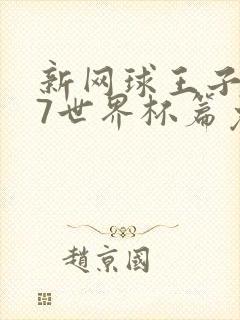 新网球王子
7世界杯篇
趙京國